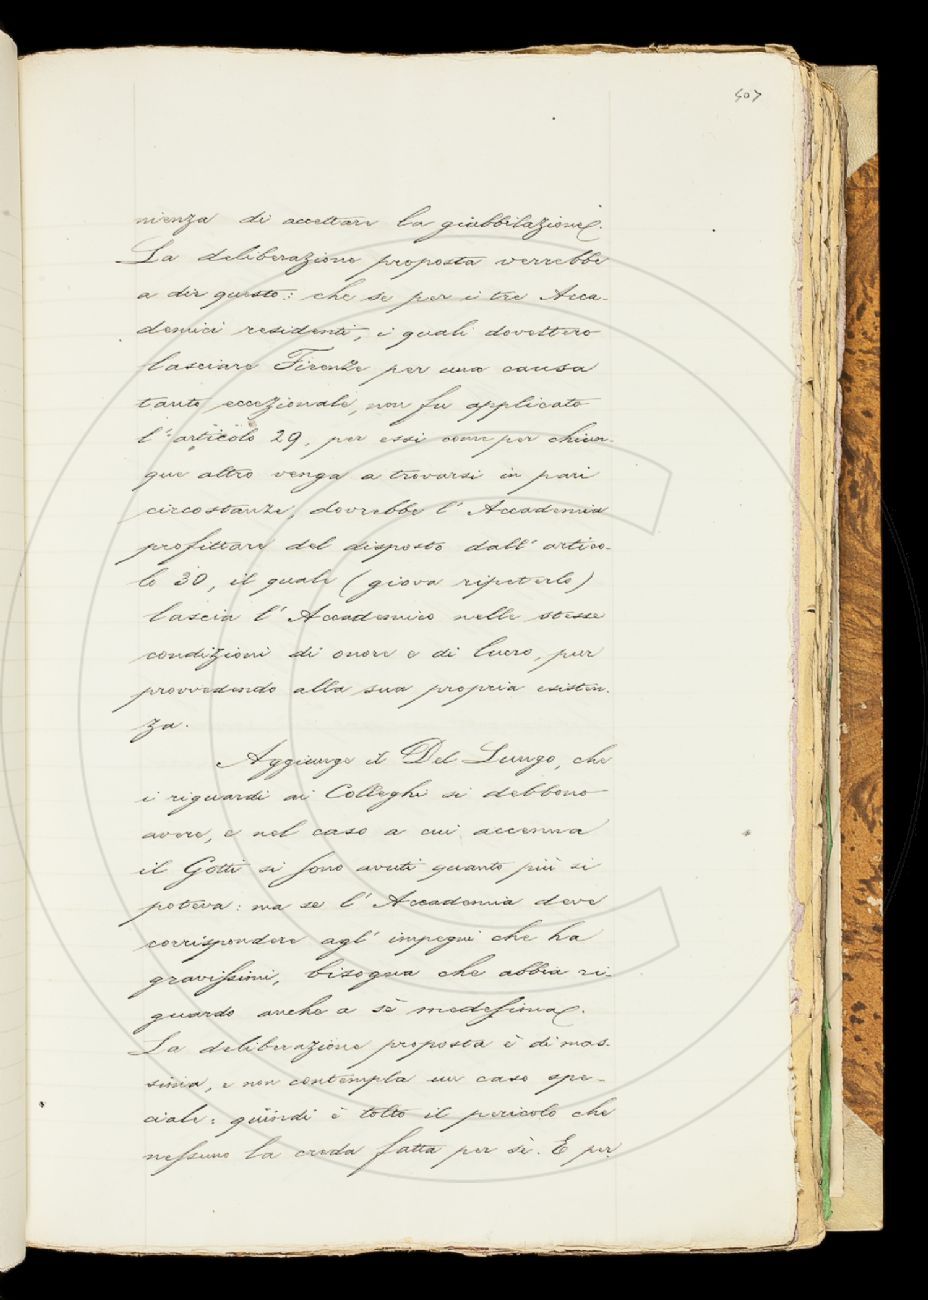 407
nienza di accettare la giubbilazione.
La deliberazione proposta verrebbe
a dir questo: che se per i tre Acca-
demici residenti, i quali dovettero
lasciare Firenze per una causa
tanto eccezionale, non fu applicato
l'articolo 29, per essi come per chiun-
que altro venga a trovarsi in pari
circostanze, dovrebbe l'Accademia
profittare del disposto dall'artico-
lo 30, il quale (giova ripeterlo)
lascia l'Accademico nelle stesse
condizioni di onore e di lucro, pur
provvedendo alla sua propria esisten-
za.
Aggiunge il Del Lungo, che
i riguardi ai Colleghi si debbono
avere, e nel caso a cui accenna
il Gotti si sono avuti quanto più si
poteva: ma se l'Accademia deve
corrispondere agl'impegni che ha
gravissimi, bisogna che abbia ri-
guardo anche a sè medesima.
La deliberazione proposta è di mas-
sima, e non contempla un caso spe-
ciale; quindi è tolto il pericolo che
nessuno la creda fatta per sè. E per